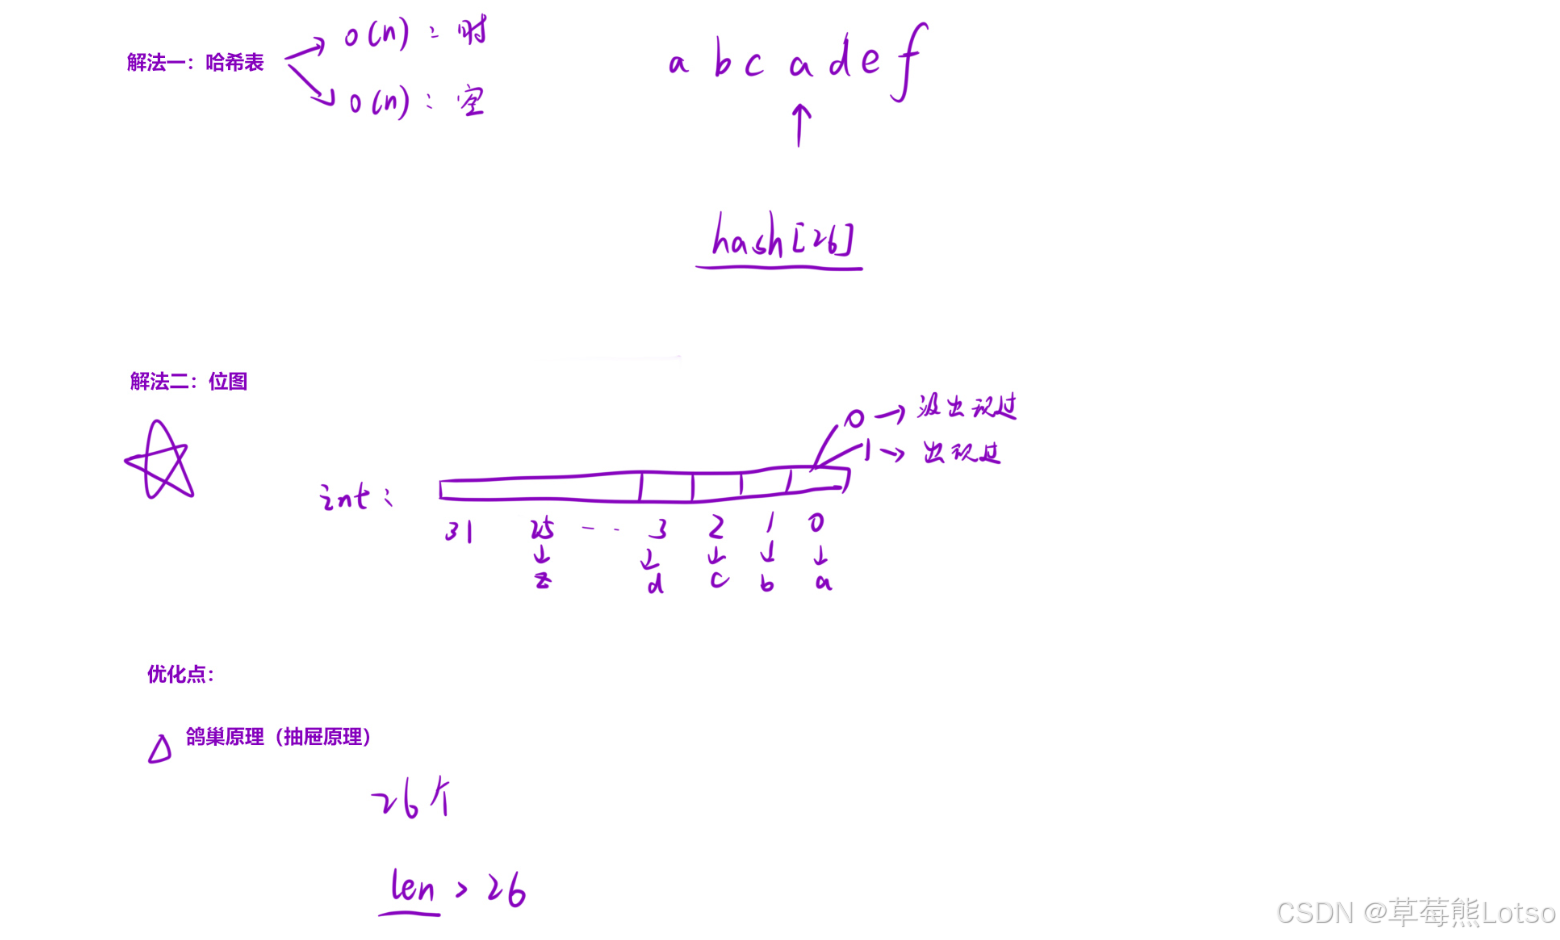 解法一：哈希表
o(n)：时
o(n)：空
a b c a d e f
hash[26]
解法二：位图
0 → 没出现过
1 → 出现过
int：
31 25 -- 3 2 1 0
z d c b a
优化点：
鸽巢原理（抽屉原理）
26个
len > 26
CSDN @草莓熊Lotso